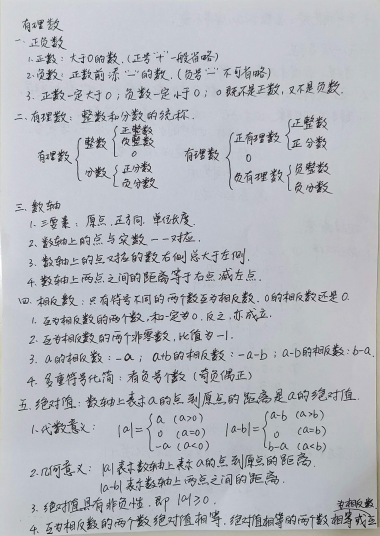 有理数
一. 正负数
1. 正数: 大于0的数. (正号"+"一般省略)
2. 负数: 正数前添"-"的数. (负号"-"不可省略)
3. 正数一定大于0; 负数一定小于0; 0既不是正数, 又不是负数.
二. 有理数: 整数和分数的统称.
有理数 { 整数 { 正整数 负整数 0 分数 { 正分数 负分数
有理数 { 正有理数 { 正整数 正分数 0 负有理数 { 负整数 负分数
三. 数轴
1. 三要素: 原点, 正方向, 单位长度.
2. 数轴上的点与实数一一对应.
3. 数轴上的点对应的数右侧总大于左侧.
4. 数轴上两点之间的距离等于右点减左点.
四. 相反数: 只有符号不同的两个数互为相反数. 0的相反数还是0.
1. 互为相反数的两个数, 和一定为0. 反之, 亦成立.
2. 互为相反数的两个非零数, 比值为-1.
3. a的相反数: -a; a+b的相反数: -a-b; a-b的相反数: b-a.
4. 多重符号化简: 有负号个数 (奇负偶正)
五. 绝对值: 数轴上表示a的点到原点的距离是a的绝对值.
1. 代数意义: |a| = { a (a>0) 0 (a=0) -a (a<0) |a-b| = { a-b (a>b) 0 (a=b) b-a (a<b)
2. 几何意义: |a|表示数轴上表示a的点到原点的距离.
|a-b|表示数轴上两点之间的距离.
3. 绝对值具有非负性, 即|a|≥0.
4. 互为相反数的两个数绝对值相等. 绝对值相等的两个数相等或互为相反数